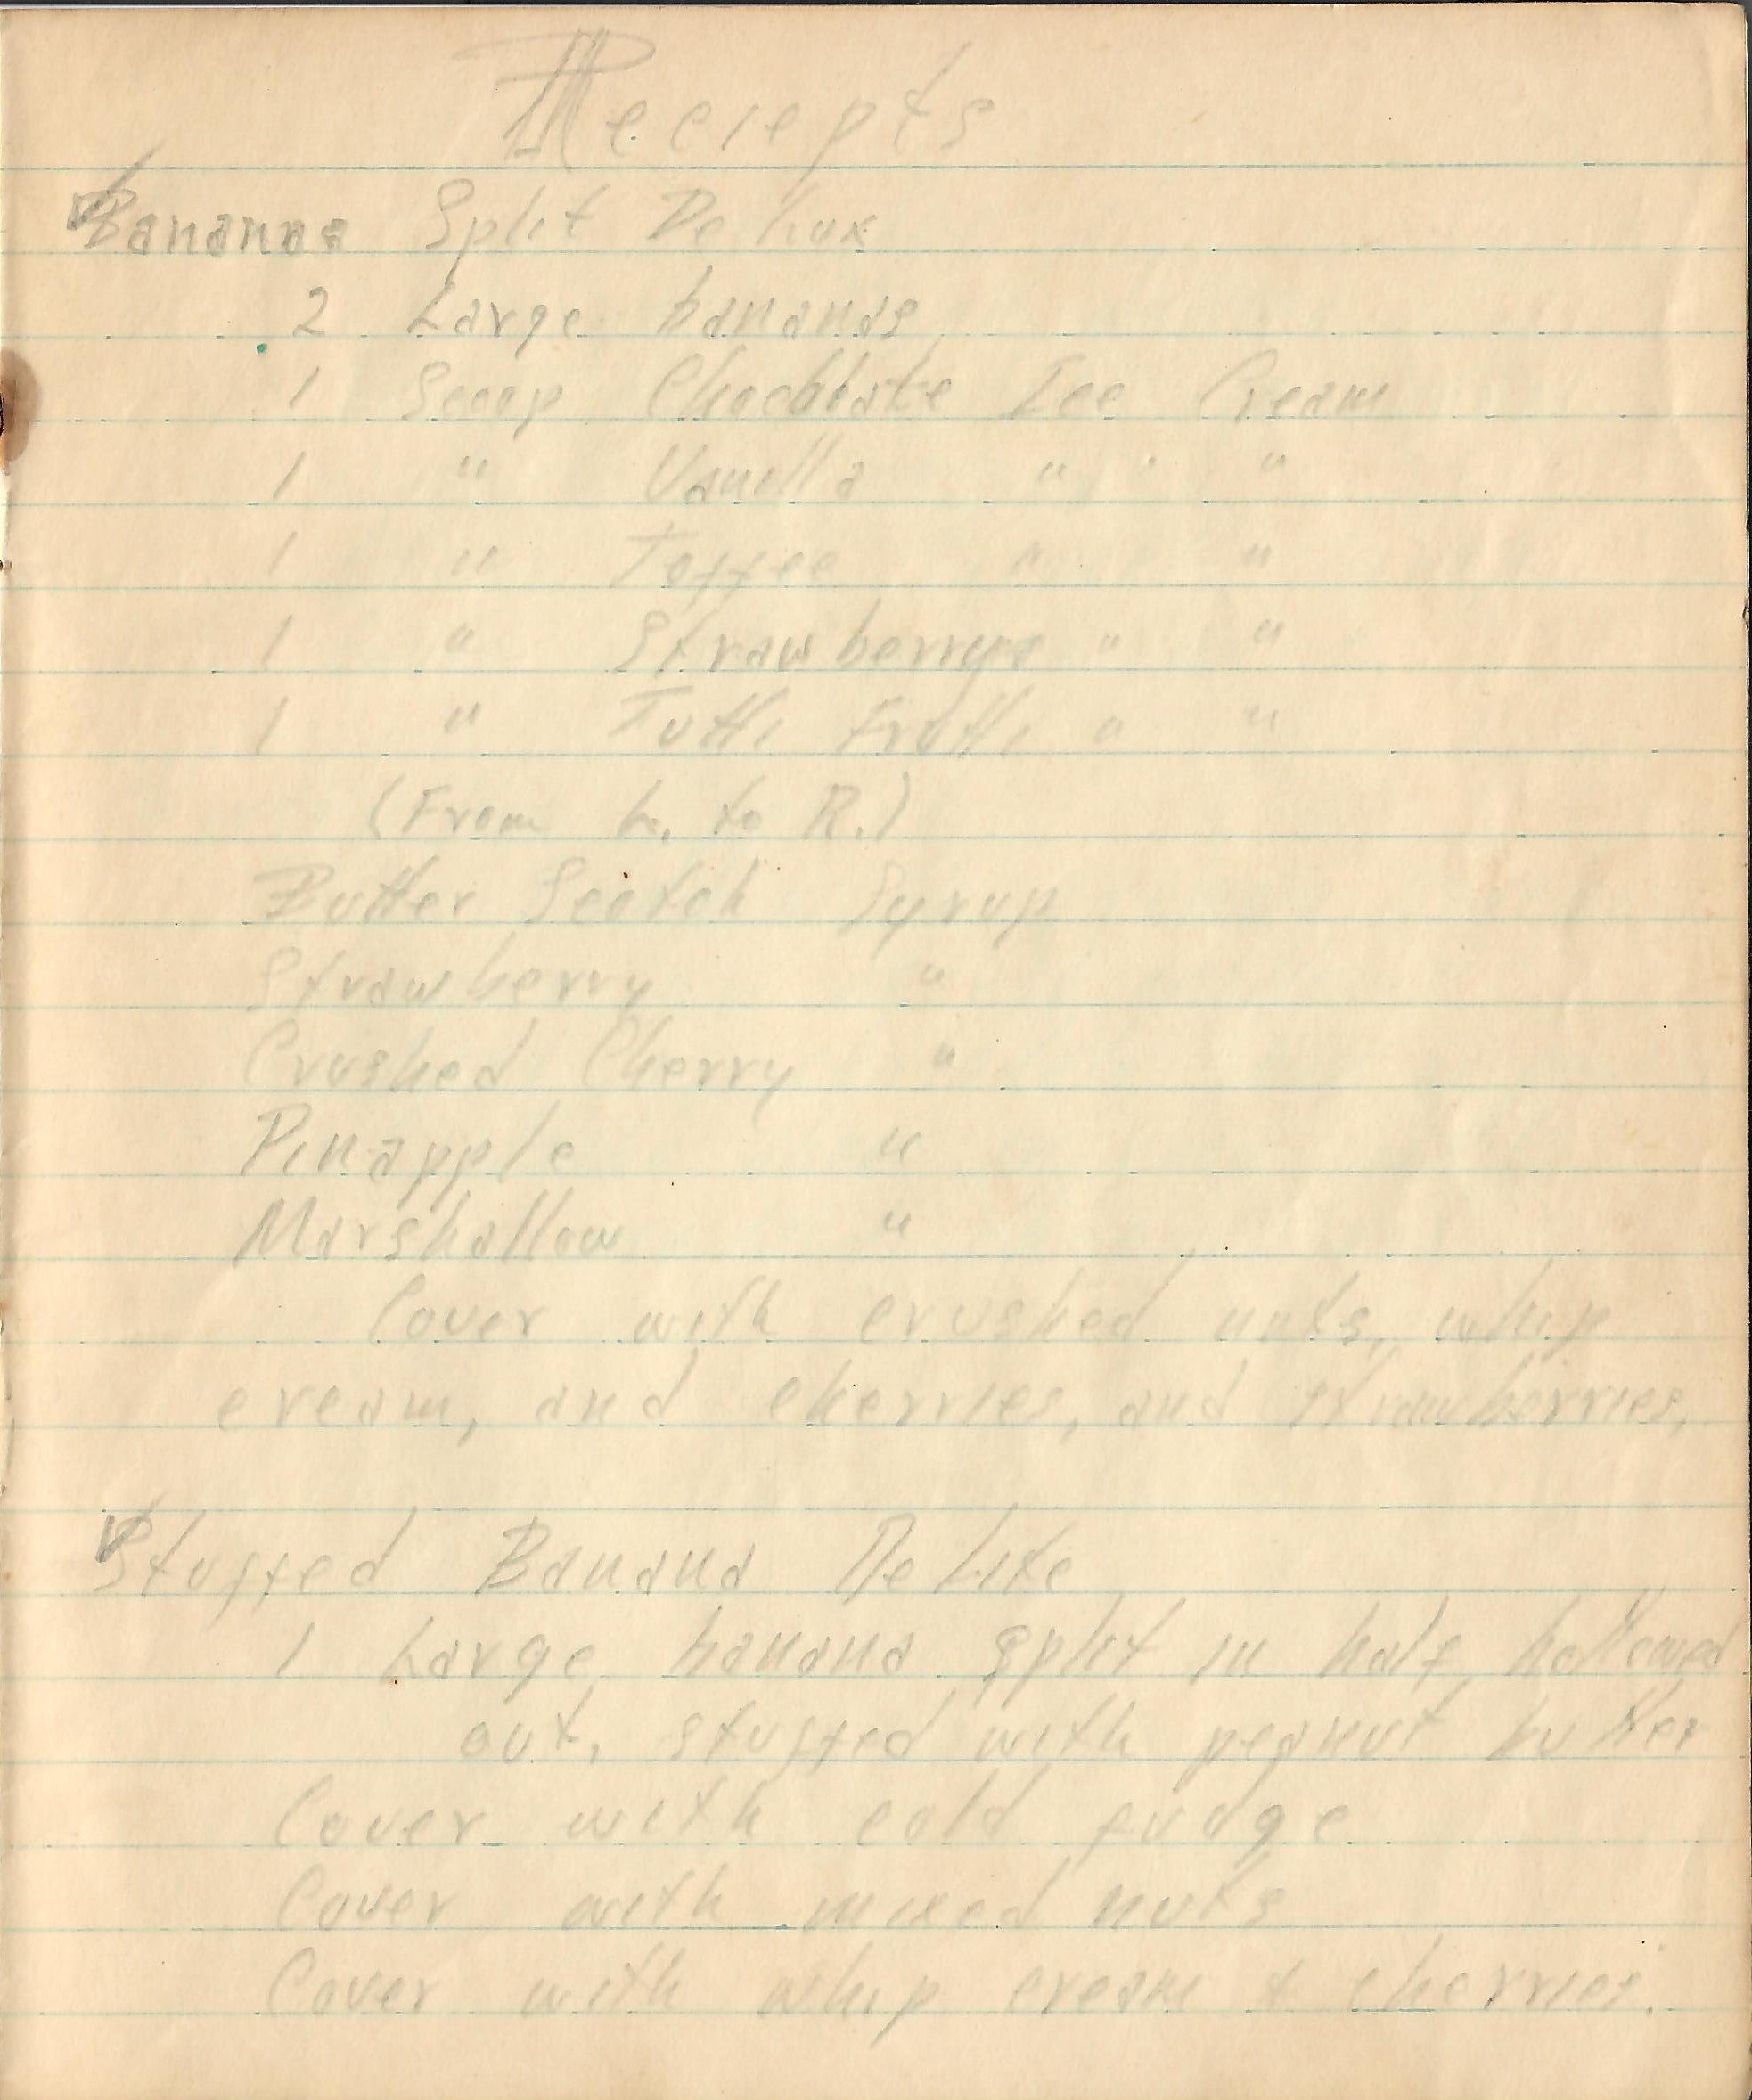 Reciepts
Bananas Split De Lux
2 Large bananas
1 Scoop Chocolate Ice Cream
1 " Vanilla " "
1 " Toffee " "
1 " Strawberrys " "
1 " Tutti Frutti " "
(From L. to R.)
Butter Scotch Syrup
Strawberry "
Crushed Cherry "
Pinapple "
Marshallow "
Cover with crushed nuts, whip
cream, and cherries, and strawberries,
Stuffed Banana De Lite
1 Large banana split in half, hollowed
out, stuffed with peanut butter
Cover with cold fudge
Cover with mixed nuts
Cover with whip cream & cherries.